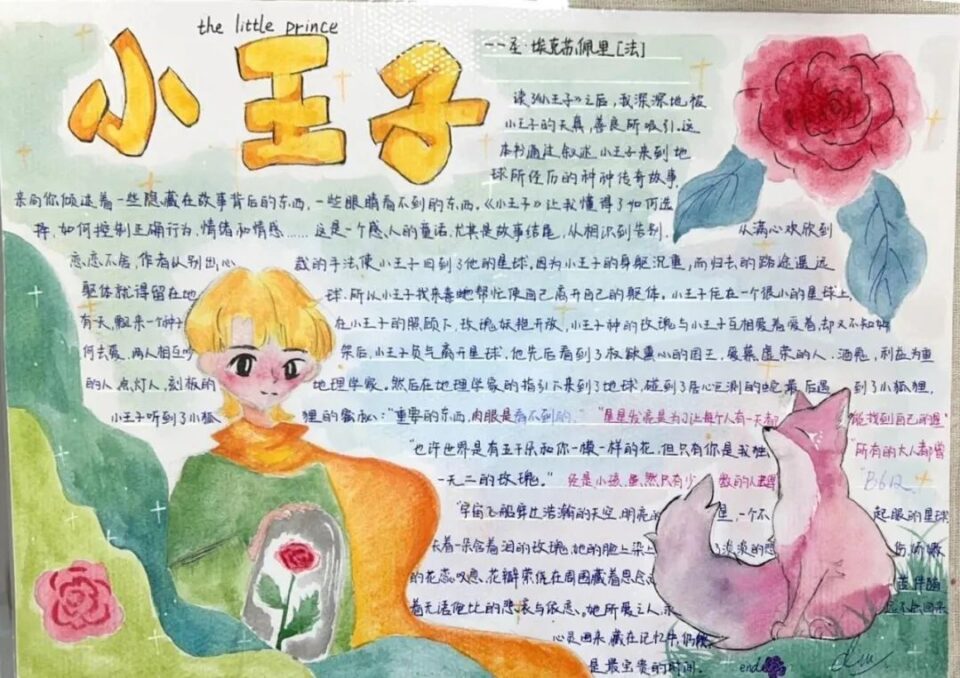 the little prince
小王子
--圣·埃克苏佩里[法]
读了《小王子》之后，我深深地被
小王子的天真，善良所吸引。这
本书通过叙述小王子来到地
球所经历的种种传奇故事，
来向你倾述着一些隐藏在故事背后的东西，一些眼睛看不到的东西。《小王子》让我懂得了如何选
择，如何控制正确行为，情绪和情感……这是一个感人的童话。尤其是故事结尾，从相识到告别，从满心欢欣到
恋恋不舍，作者以别出心裁的手法，使小王子回到了他的星球。因为小王子的身躯沉重，而归去的路途遥远
躯体就得留在地球，所以小王子找来毒蛇帮忙使自己离开自己的躯体。小王子住在一个很小的星球上，
有天，飘来一个种子在小王子的照顾下，玫瑰妖艳开放，小王子种的玫瑰与小王子互相爱着爱着却又不知如
何去爱，两人相互吵架后，小王子负气离开星球，他先后看到了权欲熏心的国王，爱慕虚荣的人，酒鬼，利益为重
的人，点灯人，刻板的地理学家。然后在地理学家的指引下来到了地球，碰到了居心叵测的蛇最后遇到了小狐狸，
小王子听到了小狐狸的秘密："重要的东西，肉眼是看不到的。" "星星发亮是为了让每个人有一天都能找到自己的星
"也许世界是有五千朵和你一模一样的花，但只有你是我独 "所有的大人都曾
一无二的玫瑰。" 经是小孩，虽然只有少数的人 "B612
"宇宙飞船穿过浩瀚的天空，明亮的星，一个不起眼的星球
着一朵含着泪的玫瑰，她的脸上染上 淡淡的 伤，娇嫩
的花恋叹息，花瓣 在周围藏着思
着无语 比的悲哀与依恋。她所展之人，永 远不会回来
心灵 回来，藏在记忆中，仍
是最宝贵的时间。 end